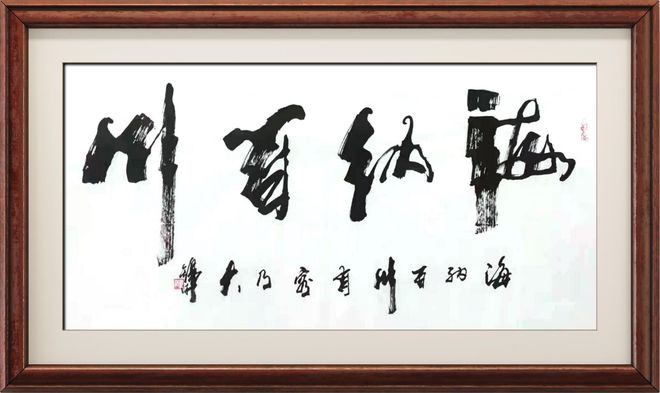 海纳百川
海纳百川有容乃大